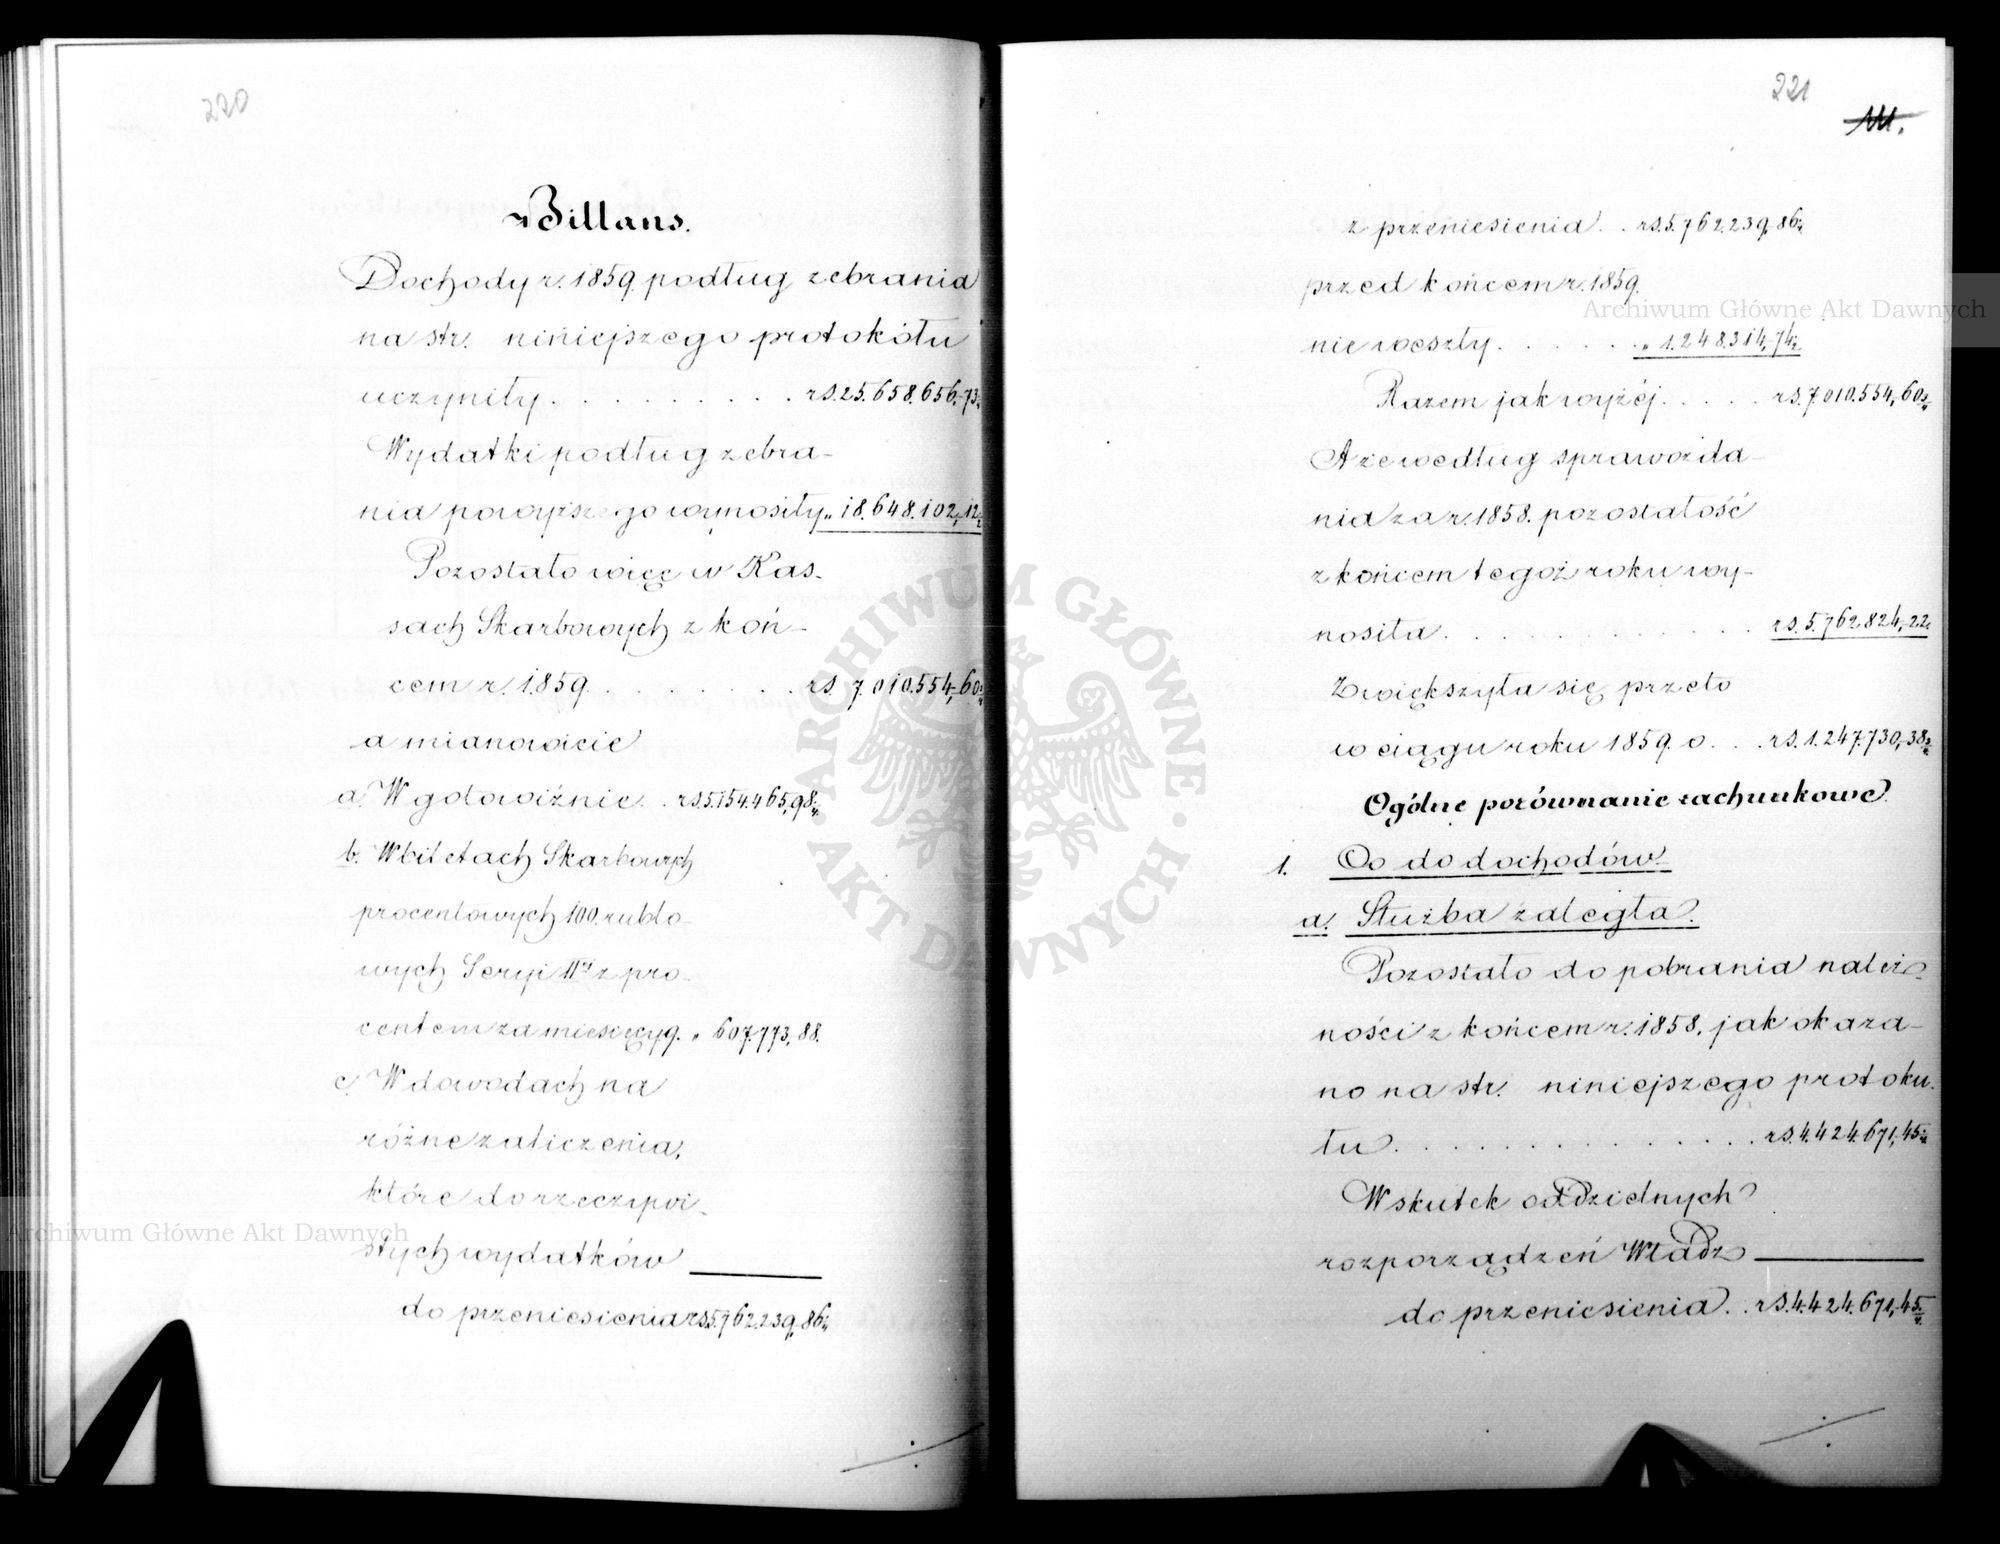 220
Billans.
Dochody r. 1859. podług zebrania
na str. niniejszego protokółu
uczyniły . . . . . . . . . rs. 25.658.656,73
Wydatki podług zebra-
nia powyższego wynosiły „ 18.648.102,12
Pozostało więc w Kas-
sach Skarbowych z koń-
cem r. 1859. . . . . . . . rs. 7.010.554,60
a mianowicie
a. W gotowiźnie . . rs. 5.154.465,98
b. W biletach Skarbowych
procentowych 100. rublo-
wych Seryi II z pro-
centem za miesięcy 9. „ 607.773,88.
c. W dowodach na
różne zaliczenia,
które do rzeczywi-
stych wydatków
do przeniesienia rs. 5.762.239,86
221
111.
z przeniesienia . . rs. 5.762.239,86
przed końcem r. 1859.
nie weszły . . . . . . . „ 1.248.314,74
Razem jak wyżéj . . . . . rs. 7.010.554,60
A że według sprawozda-
nia za r. 1858. pozostałość
z końcem tegoż roku wy-
nosiła . . . . . . . . . . . . rs. 5.762.824,22
Zwiększyła się przeto
w ciągu roku 1859. o . . . rs. 1.247.730,38
Ogólne porównanie rachunkowe.
1. Co do dochodów.
a. Służba zaległa.
Pozostało do pobrania należ-
ności z końcem r. 1858. jak okaza-
no na str. niniejszego protoku-
łu . . . . . . . . . . . . . . rs. 4.424.671,45
Wskutek oddzielnych
rozporządzeń Władz
do przeniesienia . . rs. 4.424.671,45
Archiwum Główne Akt Dawnych
Archiwum Główne Akt Dawnych
ARCHIWUM GŁÓWNE
AKT DAWNYCH